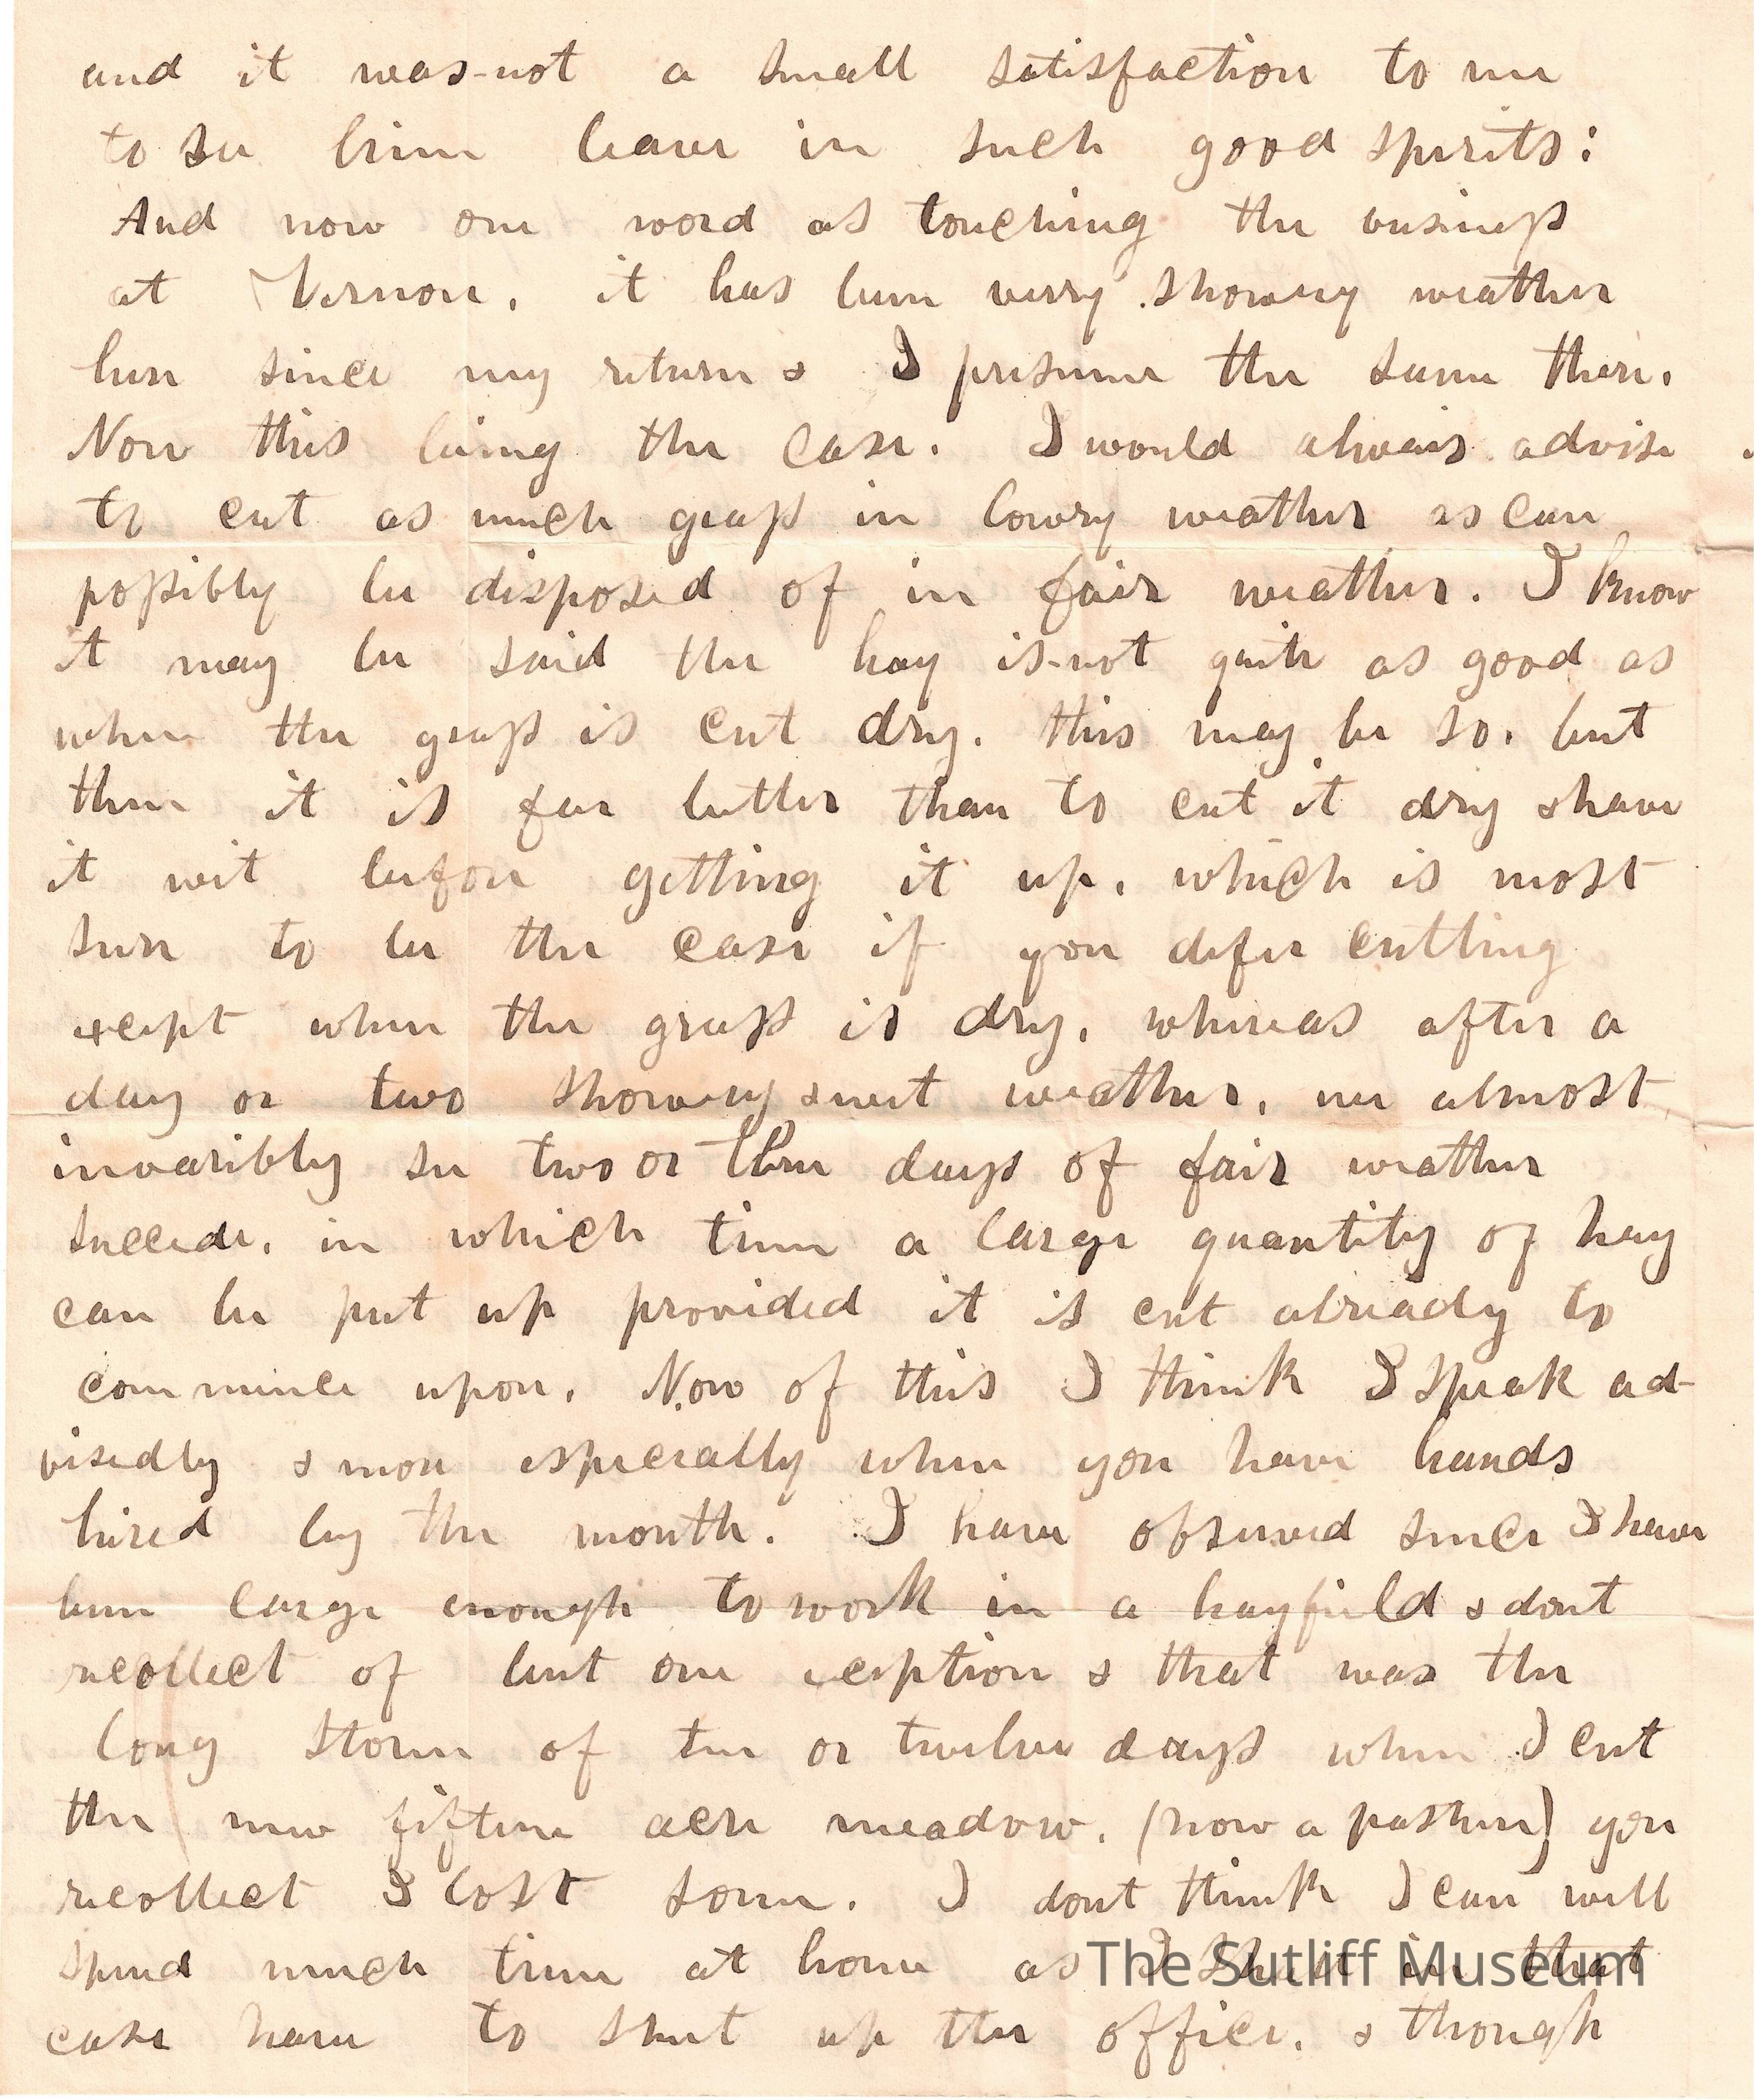 and it was not a small satisfaction to me
to see him leave in such good spirits:
And now one word as touching the business
at Vernon. it has been verry showery weather
here since my return & I presume the same there.
Now this being the case. I would alwais advise
to cut as much grass in lowry weather as can
possibly be disposed of in fair weather. I know
it may be said the hay is not quite as good as
when the grass is cut dry. this may be so. but
then it is far better than to cut it dry & have
it wet before getting it up. which is most
sure to be the case if you defer cutting
except when the grass is dry. whereas after a
day or two showery & wet weather. we almost
invaribly see two or three days of fair weather
succede. in which time a large quantity of hay
can be put up provided it is cut already to
commence upon. Now of this I think I speak ad-
visedly & more especially when you have hands
hired by the month. I have observed since I have
been large enough to work in a hayfield & dont
recollect of but one exception & that was the
long storm of ten or twelve days when I cut
the new fifteen acre meadow. (now a pasture) you
recollect I lost some. I dont think I can well
spend much time at home as I shall in that
case have to shut up the office. & though
The Sutliff Museum